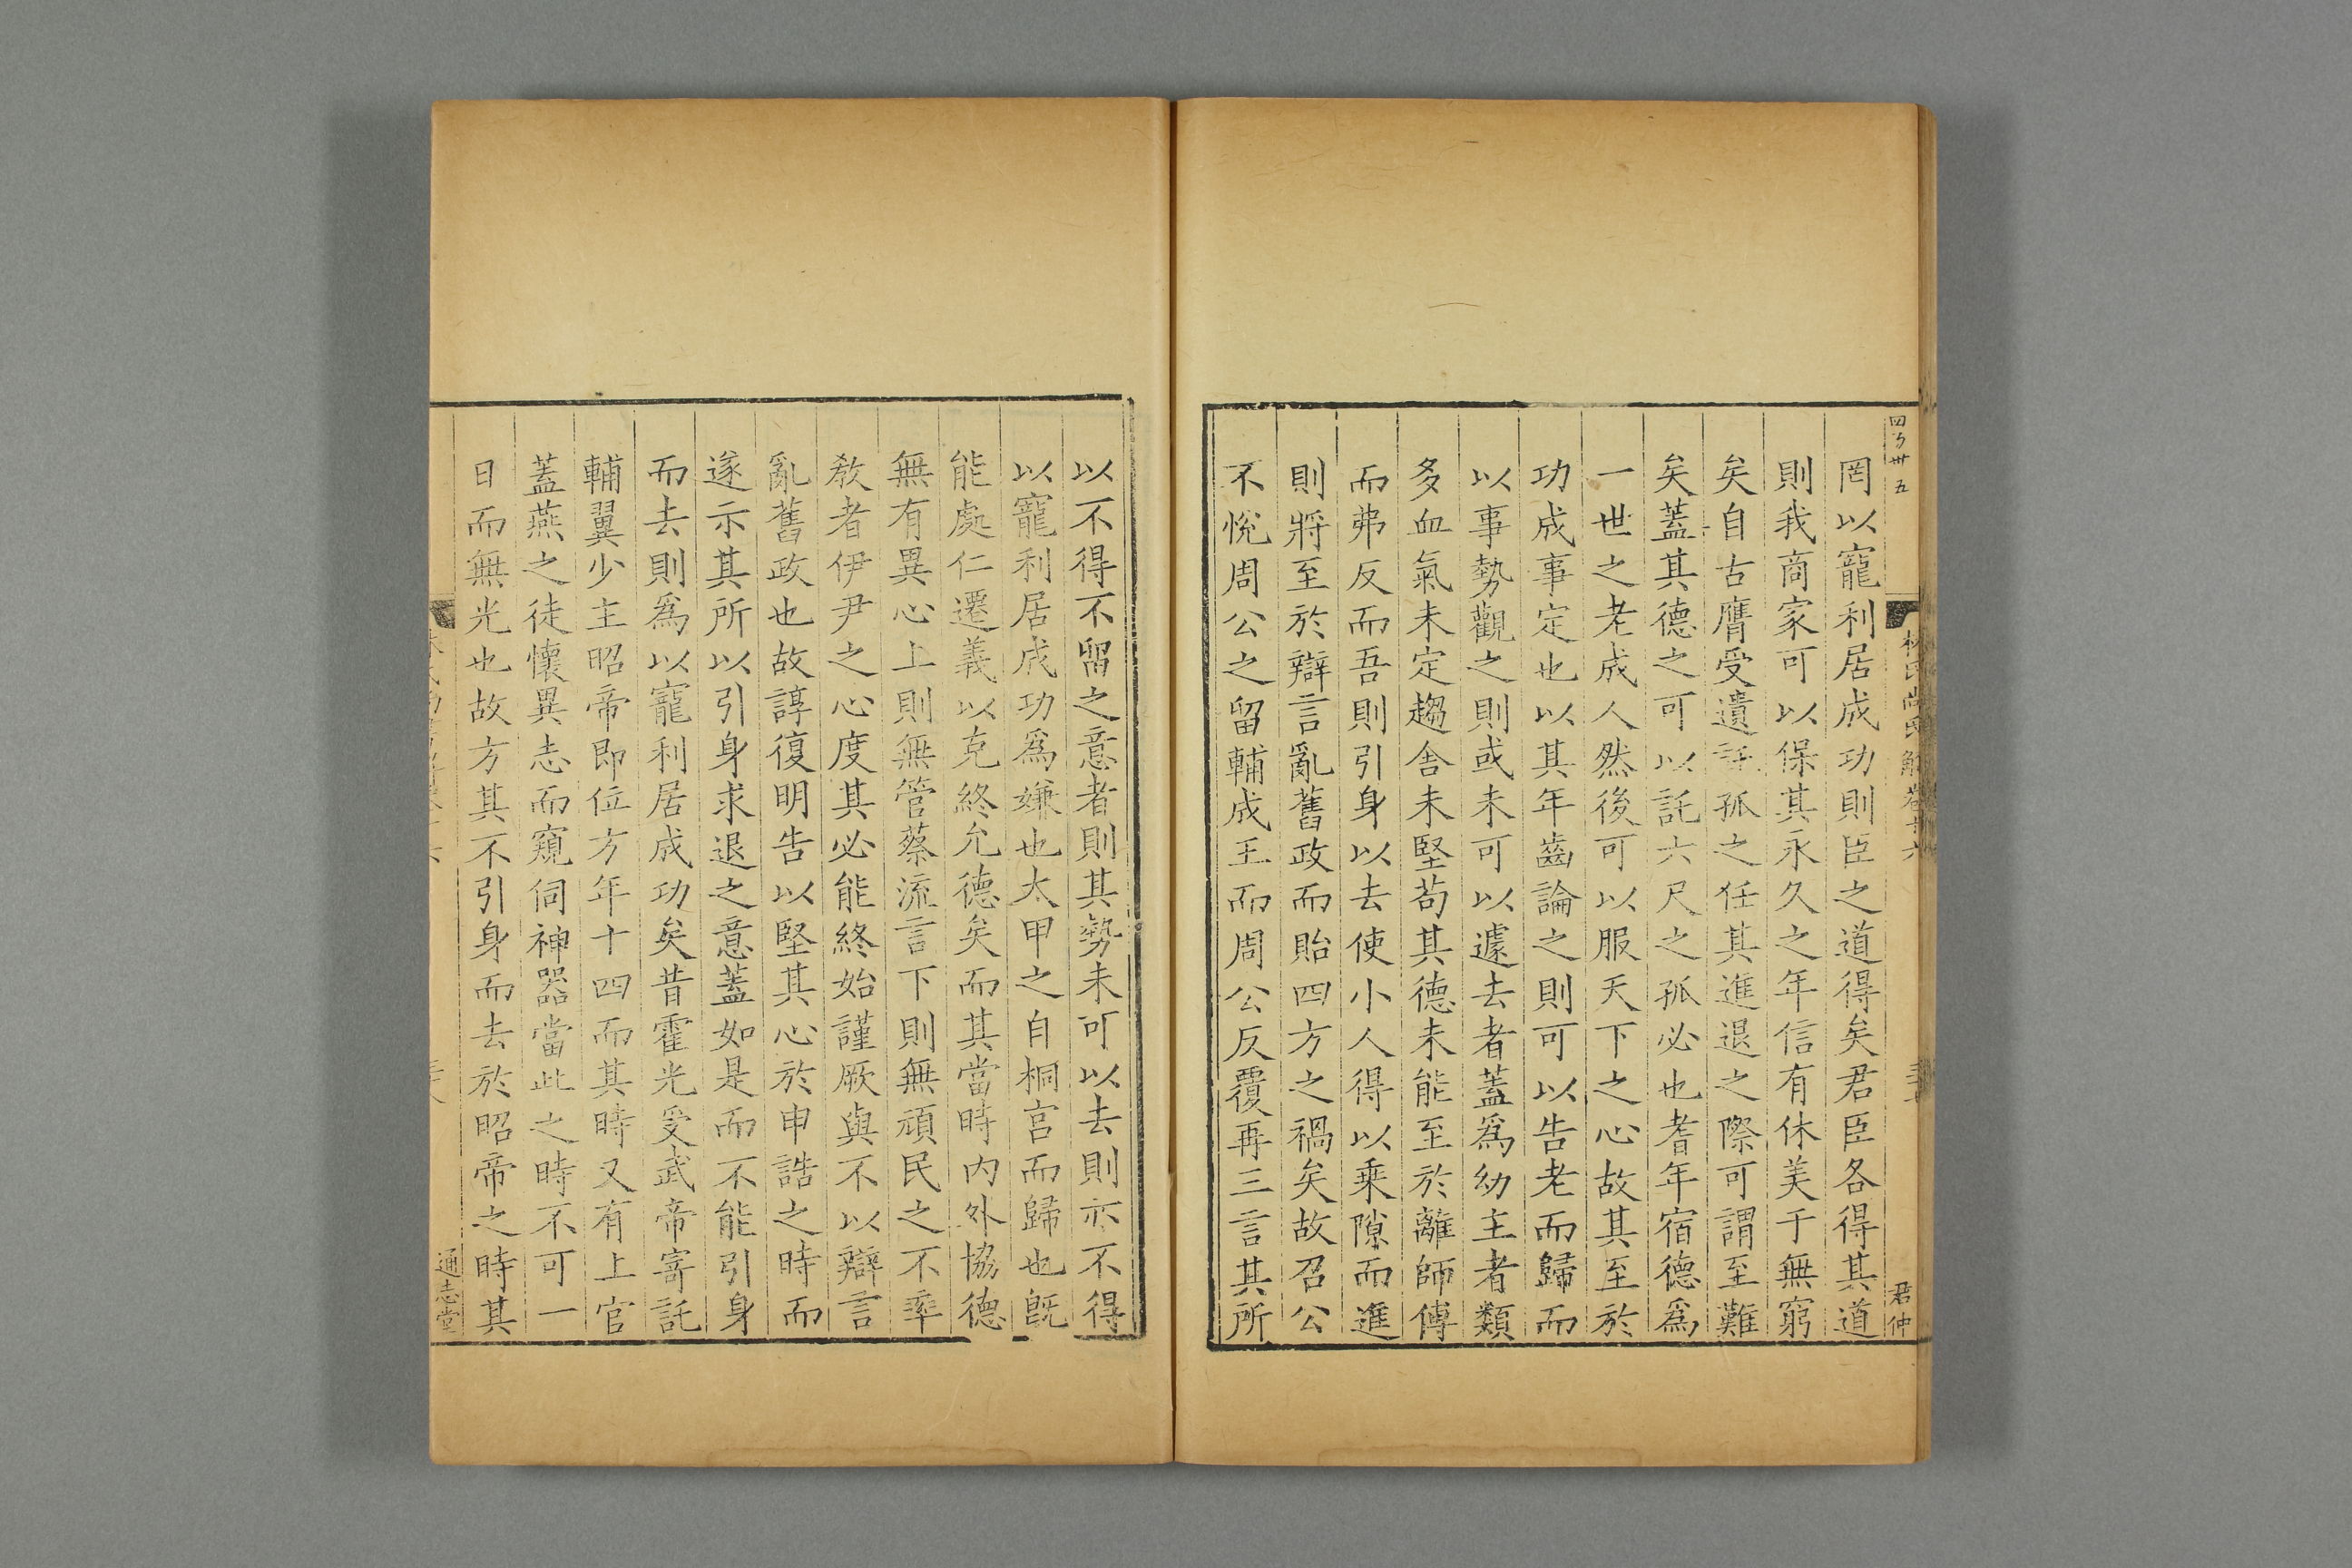 四百卅五
林氏尚書解卷十六
君仲
罔以寵利居成功則臣之道得矣君臣各得其道
則我商家可以保其永久之年信有休美于無窮
矣自古膺受遺託孤之任其進退之際可謂至難
矣蓋其德之可以託六尺之孤必也耆年宿德爲
一世之老成人然後可以服天下之心故其至於
功成事定也以其年齒論之則可以告老而歸而
以事勢觀之則或未可以遽去者蓋爲幼主者類
多血氣未定趨舍未堅苟其德未能至於離師傅
而弗反而吾則引身以去使小人得以乘隙而進
則將至於辯言亂舊政而貽四方之禍矣故召公
不恱周公之留輔成王而周公反覆再三言其所
以不得不留之意者則其勢未可以去則亦不得
以寵利居成功爲嫌也太甲之自桐宮而歸也旣
能處仁遷義以克終允德矣而其當時內外協德
無有異心上則無管蔡流言下則無頑民之不率
教者伊尹之心度其必能終始謹厥與不以辯言
亂舊政也故諄復明告以堅其心於申誥之時而
遂示其所以引身求退之意蓋如是而不能引身
而去則爲以寵利居成功矣昔霍光受武帝寄託
輔翼少主昭帝即位方年十四而其時又有上官
蓋燕之徒懷異志而窺伺神器當此之時不可一
日而無光也故方其不引身而去於昭帝之時其
通志堂